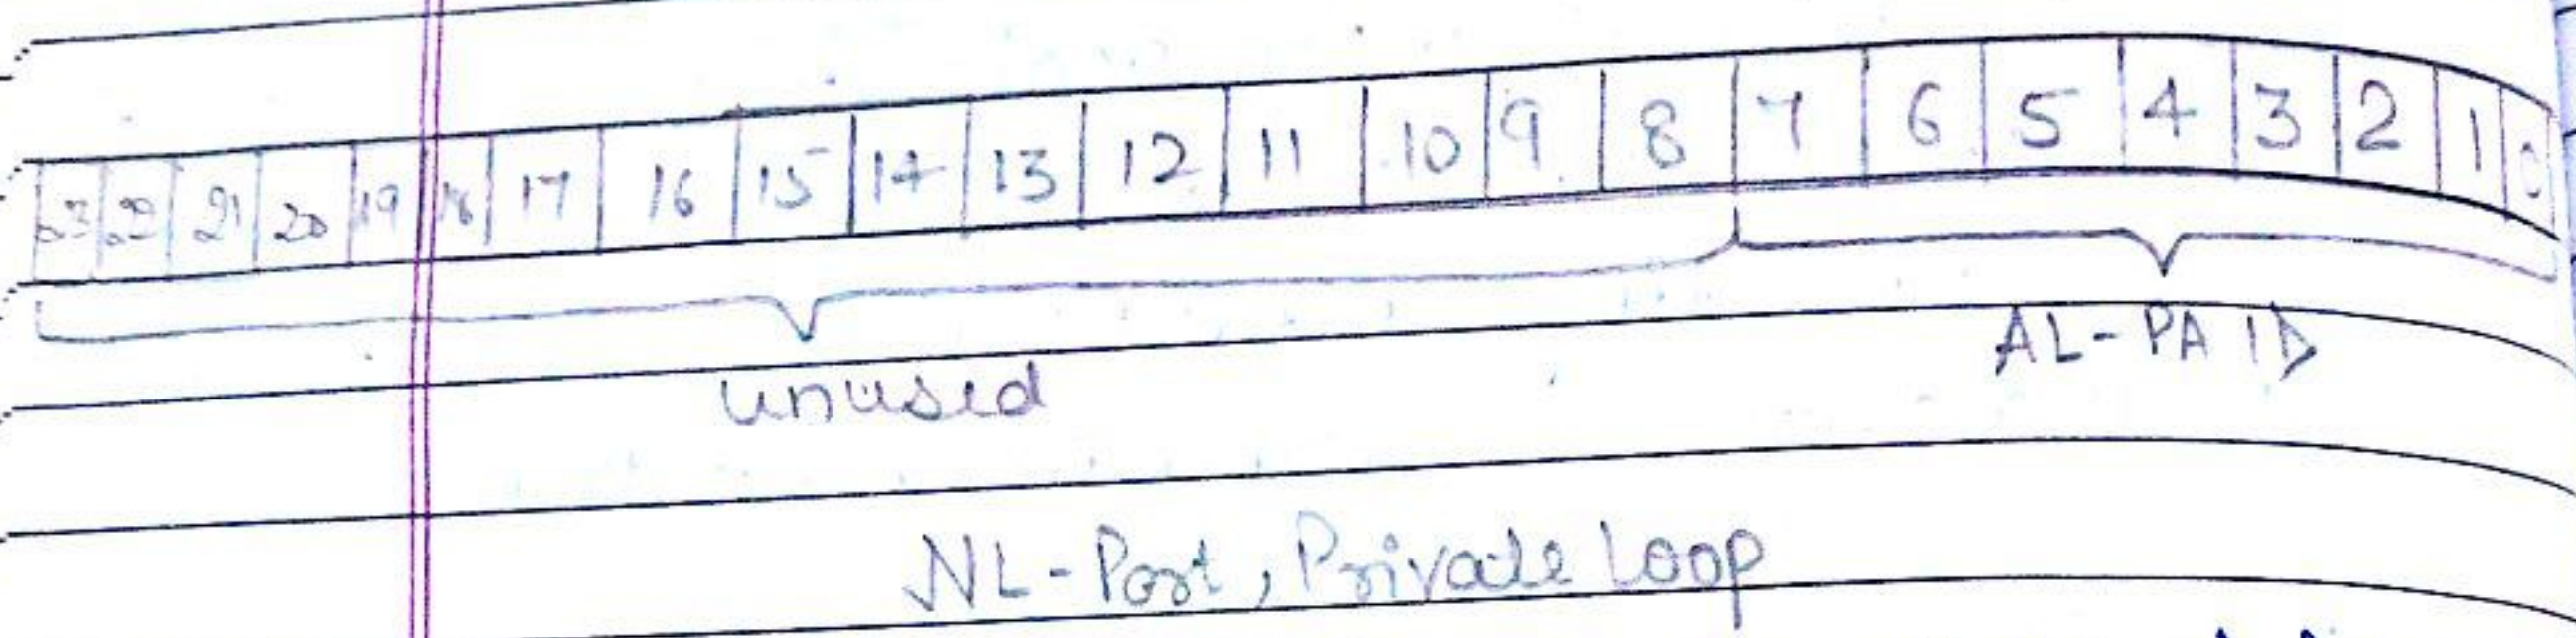 23 22 21 20 19 18 17 16 15 14 13 12 11 10 9 8 7 6 5 4 3 2 1 0
unused AL-PA ID
NL-Port, Private Loop